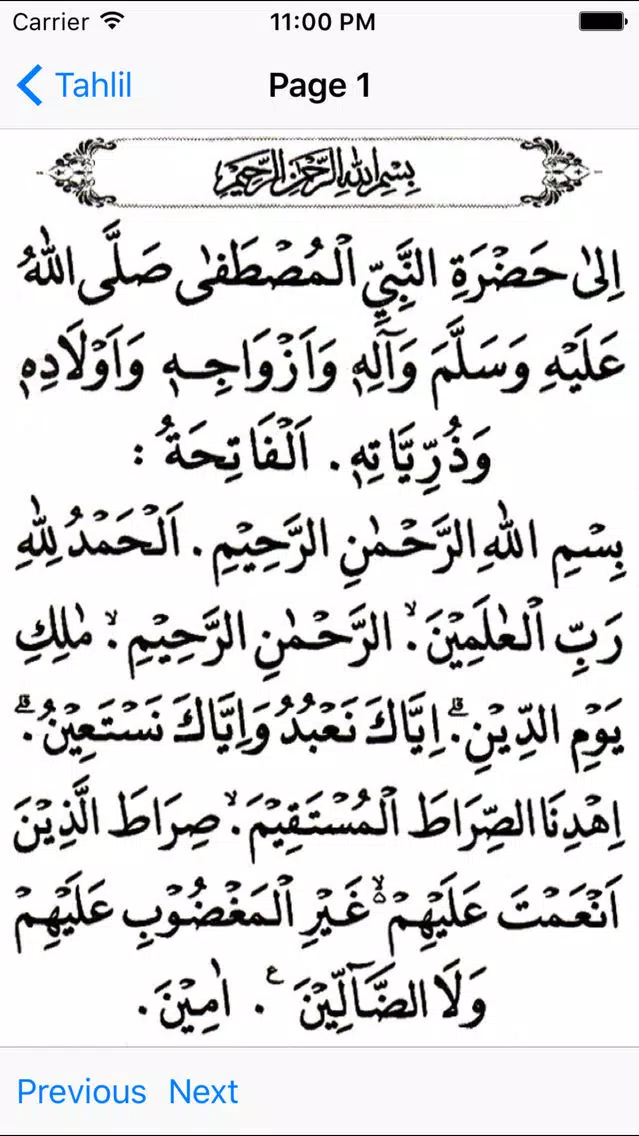 Carrier 11:00 PM
Tahlil Page 1
بِسْمِ اللهِ الرَّحْمٰنِ الرَّحِيْمِ
اِلىٰ حَضْرَةِ النَّبِيِّ الْمُصْطَفىٰ صَلَّى اللهُ
عَلَيْهِ وَسَلَّمَ وَآلِهٖ وَاَزْوَاجِهٖ وَاَوْلَادِهٖ
وَذُرِّيَّاتِهٖ. اَلْفَاتِحَةُ :
بِسْمِ اللهِ الرَّحْمٰنِ الرَّحِيْمِ. اَلْحَمْدُ لِلّٰهِ
رَبِّ الْعٰلَمِيْنَۙ. الرَّحْمٰنِ الرَّحِيْمِۙ. مٰلِكِ
يَوْمِ الدِّيْنِۗ. اِيَّاكَ نَعْبُدُ وَاِيَّاكَ نَسْتَعِيْنُۗ.
اِهْدِنَا الصِّرَاطَ الْمُسْتَقِيْمَۙ. صِرَاطَ الَّذِيْنَ
اَنْعَمْتَ عَلَيْهِمْ ەۙ غَيْرِ الْمَغْضُوْبِ عَلَيْهِمْ
وَلَا الضَّآلِّيْنَ ࣖ. اٰمِيْنَ.
Previous Next